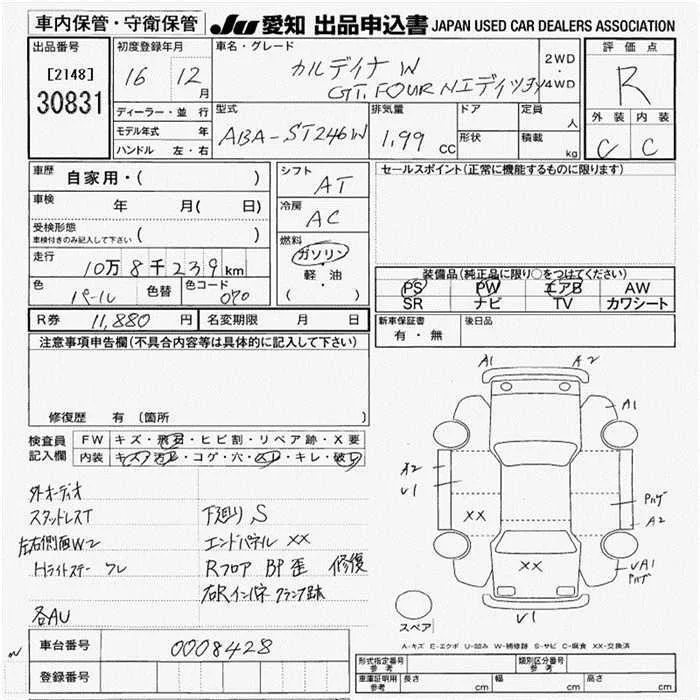 車内保管・守衛保管
JU 愛知 出品申込書 JAPAN USED CAR DEALERS ASSOCIATION
出品番号
[2148]
30831
初度登録年月
16 12月
ディーラー・並行
モデル年式 年
ハンドル 左・右
車名・グレード
カルディナ W
GT. FOUR Nエディション
2WD
・
4WD
評価点
R
外装 内装
C C
型式
ABA-ST246W
排気量
1.99 cc
ドア
形状
定員
人
積載
kg
車歴
自家用・( )
車検
年 月( 日)
受検形態
車検付きのみ記入して下さい ( )
走行
10万8千239km
色
パール
色替
色コード
070
シフト
AT
冷房
AC
燃料
ガソリン
軽・油
( )
セールスポイント(正常に機能するものに限ります)
装備品(純正品に限り○をつけてください)
PS PW エアB AW
SR ナビ TV カワシート
R券 11,880 円 名変期限 月 日
新車保証書
有・無
後日品
注意事項申告欄(不具合内容等は具体的に記入して下さい)
修復歴 有 〔箇所
検査員
記入欄
FW キズ・飛石・ヒビ割・リペア跡・X要
内装 キズ・汚レ・コゲ・穴・スレ・キレ・破レ
外オーディオ
スタッドレスT
左右側面W2
Hライトステー ワレ
各AU
下廻り S
エンドパネル XX
Rフロア BP歪 修復
右Rインパネ クランプ跡
A1 A2
A1
A2
V1
XX
XX
A2
VA1
V1
スペア
A-キズ E-エクボ U-凹み W-補修跡 S-サビ C-腐食 XX-交換済
車台番号 0008428
登録番号
型式指定番号
参考
類別区分番号
参考
車庫証明用
参考
長さ cm 幅 cm 高さ cm